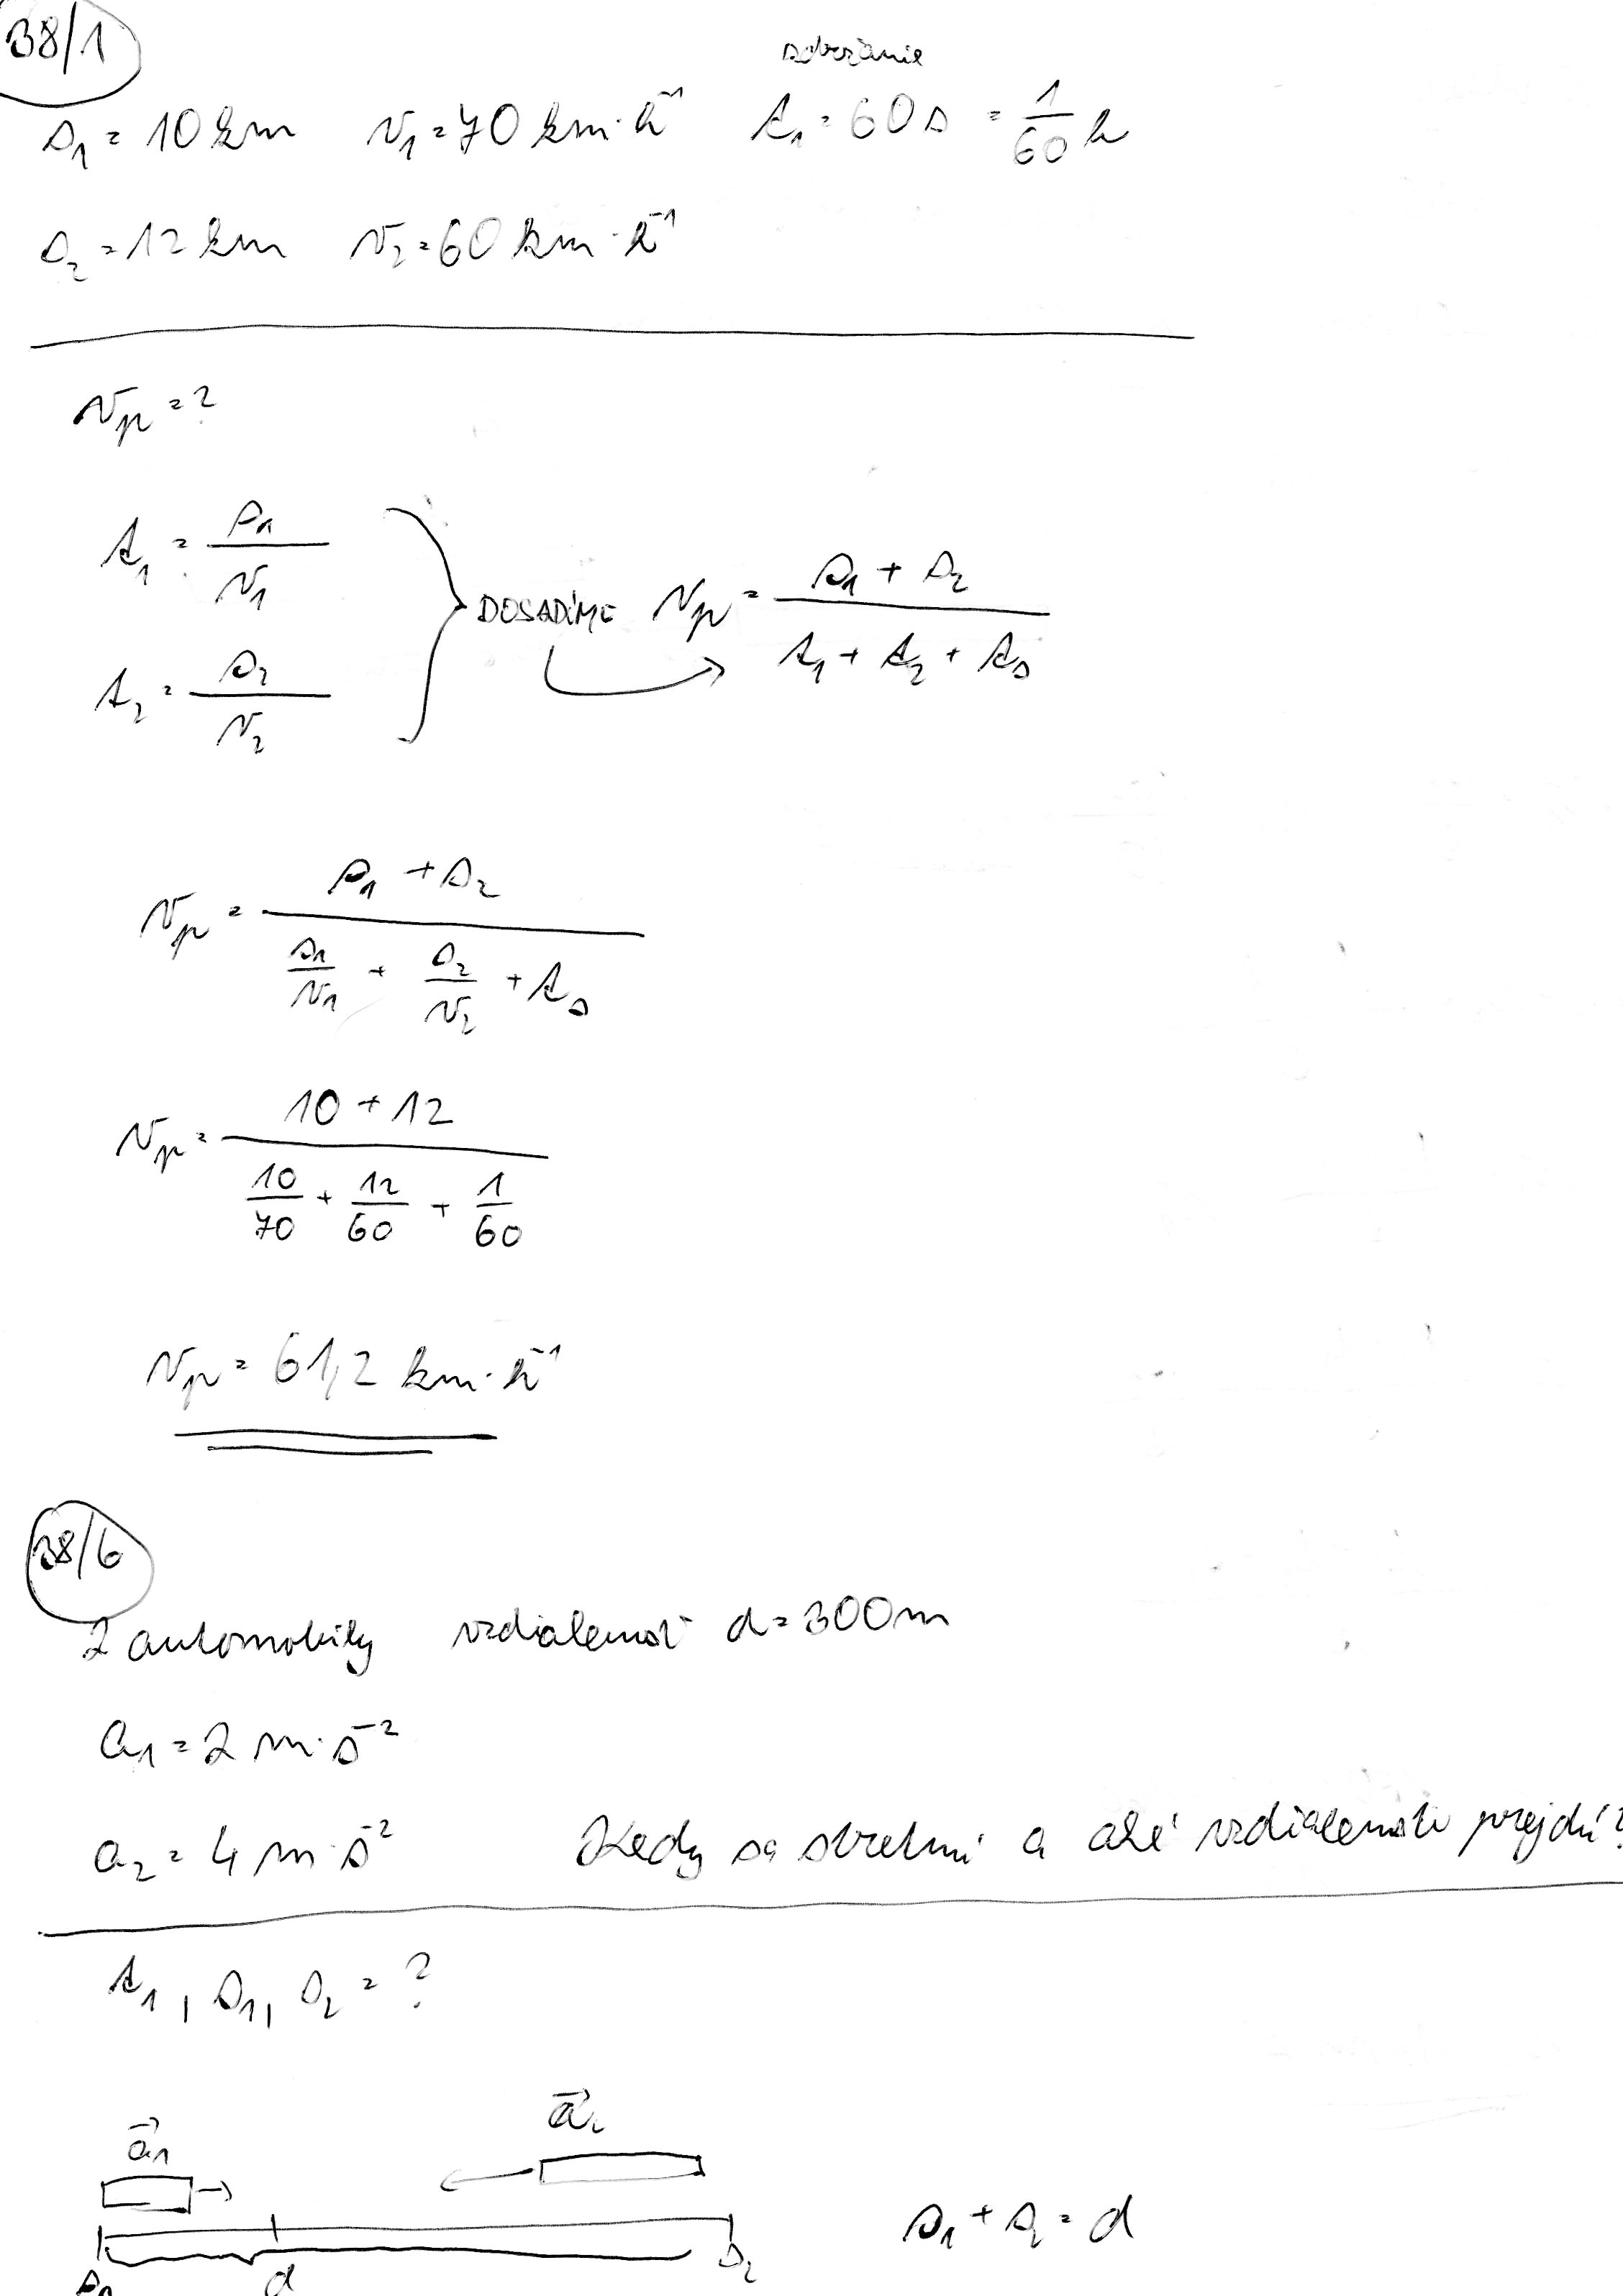 38/1
zdržanie
s₁ = 10 km v₁ = 70 km·h⁻¹ t₁ = 60 s = 1/60 h
s₂ = 12 km v₂ = 60 km·h⁻¹
vₚ = ?
t₁ = s₁/v₁
t₂ = s₂/v₂
DOSADÍME vₚ = (s₁ + s₂)/(t₁ + t₂ + tₛ)
vₚ = (s₁ + s₂)/(s₁/v₁ + s₂/v₂ + tₛ)
vₚ = (10 + 12)/(10/70 + 12/60 + 1/60)
vₚ = 61,2 km·h⁻¹
38/6
2 automobily vzdialenosť d = 300 m
a₁ = 2 m·s⁻²
a₂ = 4 m·s⁻² Kedy sa stretnú a aké vzdialenosti prejdú?
t₁, s₁, s₂ = ?
a⃗₁ a⃗₂
s₁ + s₂ = d
s₁ d s₂